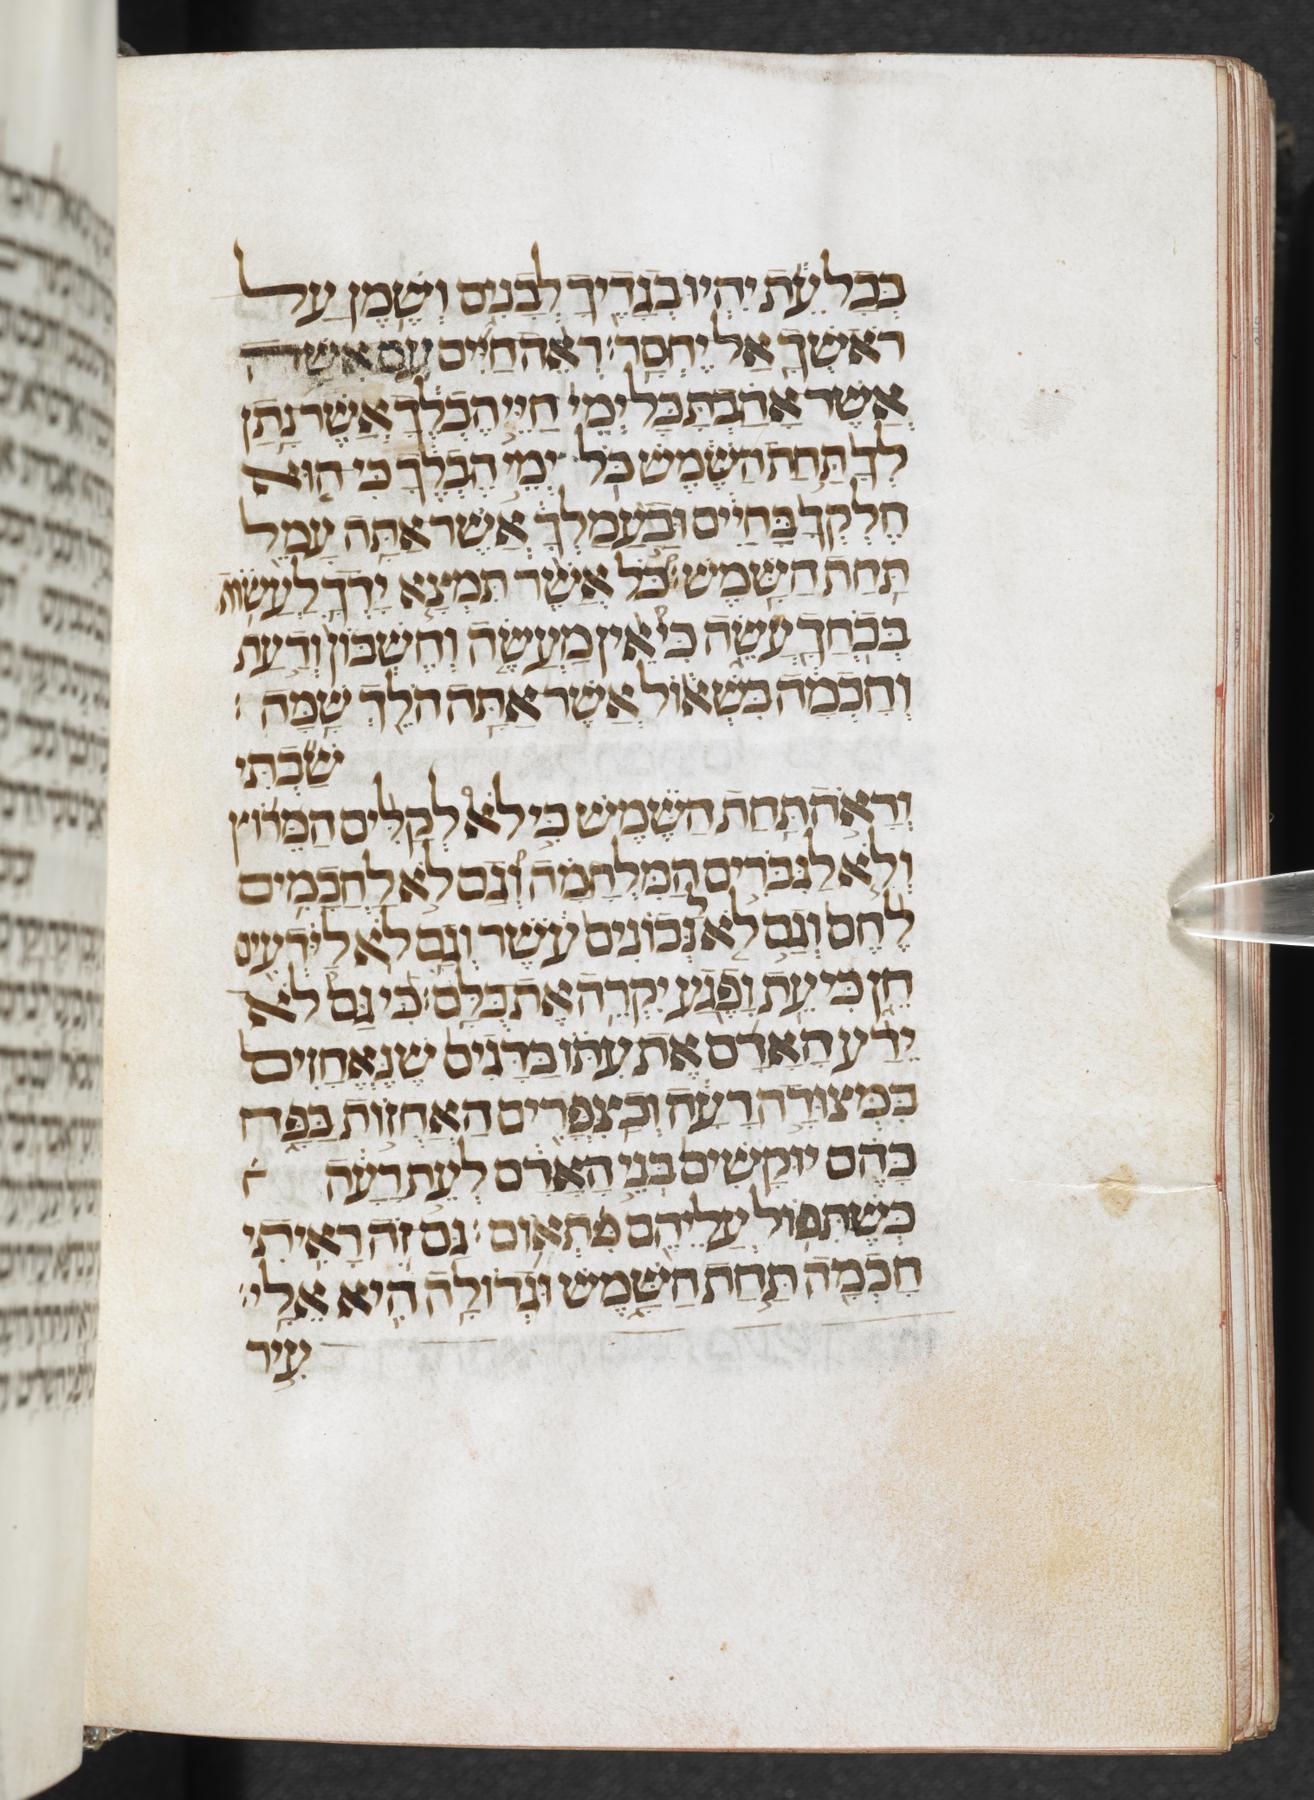 בְּכָל עֵת יִהְיוּ בְגָדֶיךָ לְבָנִים וְשֶׁמֶן עַל
רֹאשְׁךָ אַל יֶחְסָר׃ רְאֵה חַיִּים עִם אִשָּׁה
אֲשֶׁר אָהַבְתָּ כָּל יְמֵי חַיֵּי הֶבְלֶךָ אֲשֶׁר נָתַן
לְךָ תַּחַת הַשֶּׁמֶשׁ כֹּל יְמֵי הֶבְלֶךָ כִּי הוּא
חֶלְקְךָ בַּחַיִּים וּבַעֲמָלְךָ אֲשֶׁר אַתָּה עָמֵל
תַּחַת הַשָּׁמֶשׁ׃ כֹּל אֲשֶׁר תִּמְצָא יָדְךָ לַעֲשׂוֹת
בְּכֹחֲךָ עֲשֵׂה כִּי אֵין מַעֲשֶׂה וְחֶשְׁבּוֹן וְדַעַת
וְחָכְמָה בִּשְׁאוֹל אֲשֶׁר אַתָּה הֹלֵךְ שָׁמָּה׃
שַׁבְתִּי
וְרָאֹה תַחַת הַשֶּׁמֶשׁ כִּי לֹא לַקַּלִּים הַמֵּרוֹץ
וְלֹא לַגִּבּוֹרִים הַמִּלְחָמָה וְגַם לֹא לַחֲכָמִים
לֶחֶם וְגַם לֹא לַנְּבוֹנִים עֹשֶׁר וְגַם לֹא לַיֹּדְעִים
חֵן כִּי עֵת וָפֶגַע יִקְרֶה אֶת כֻּלָּם׃ כִּי גַּם לֹא
יֵדַע הָאָדָם אֶת עִתּוֹ כַּדָּגִים שֶׁנֶּאֱחָזִים
בִּמְצוּדָה רָעָה וְכַצִּפֳּרִים הָאֲחֻזוֹת בַּפָּח
כָּהֵם יוּקָשִׁים בְּנֵי הָאָדָם לְעֵת רָעָה
כְּשֶׁתִּפּוֹל עֲלֵיהֶם פִּתְאוֹם׃ גַּם זֹה רָאִיתִי
חָכְמָה תַּחַת הַשָּׁמֶשׁ וּגְדוֹלָה הִיא אֵלָי׃
עִיר